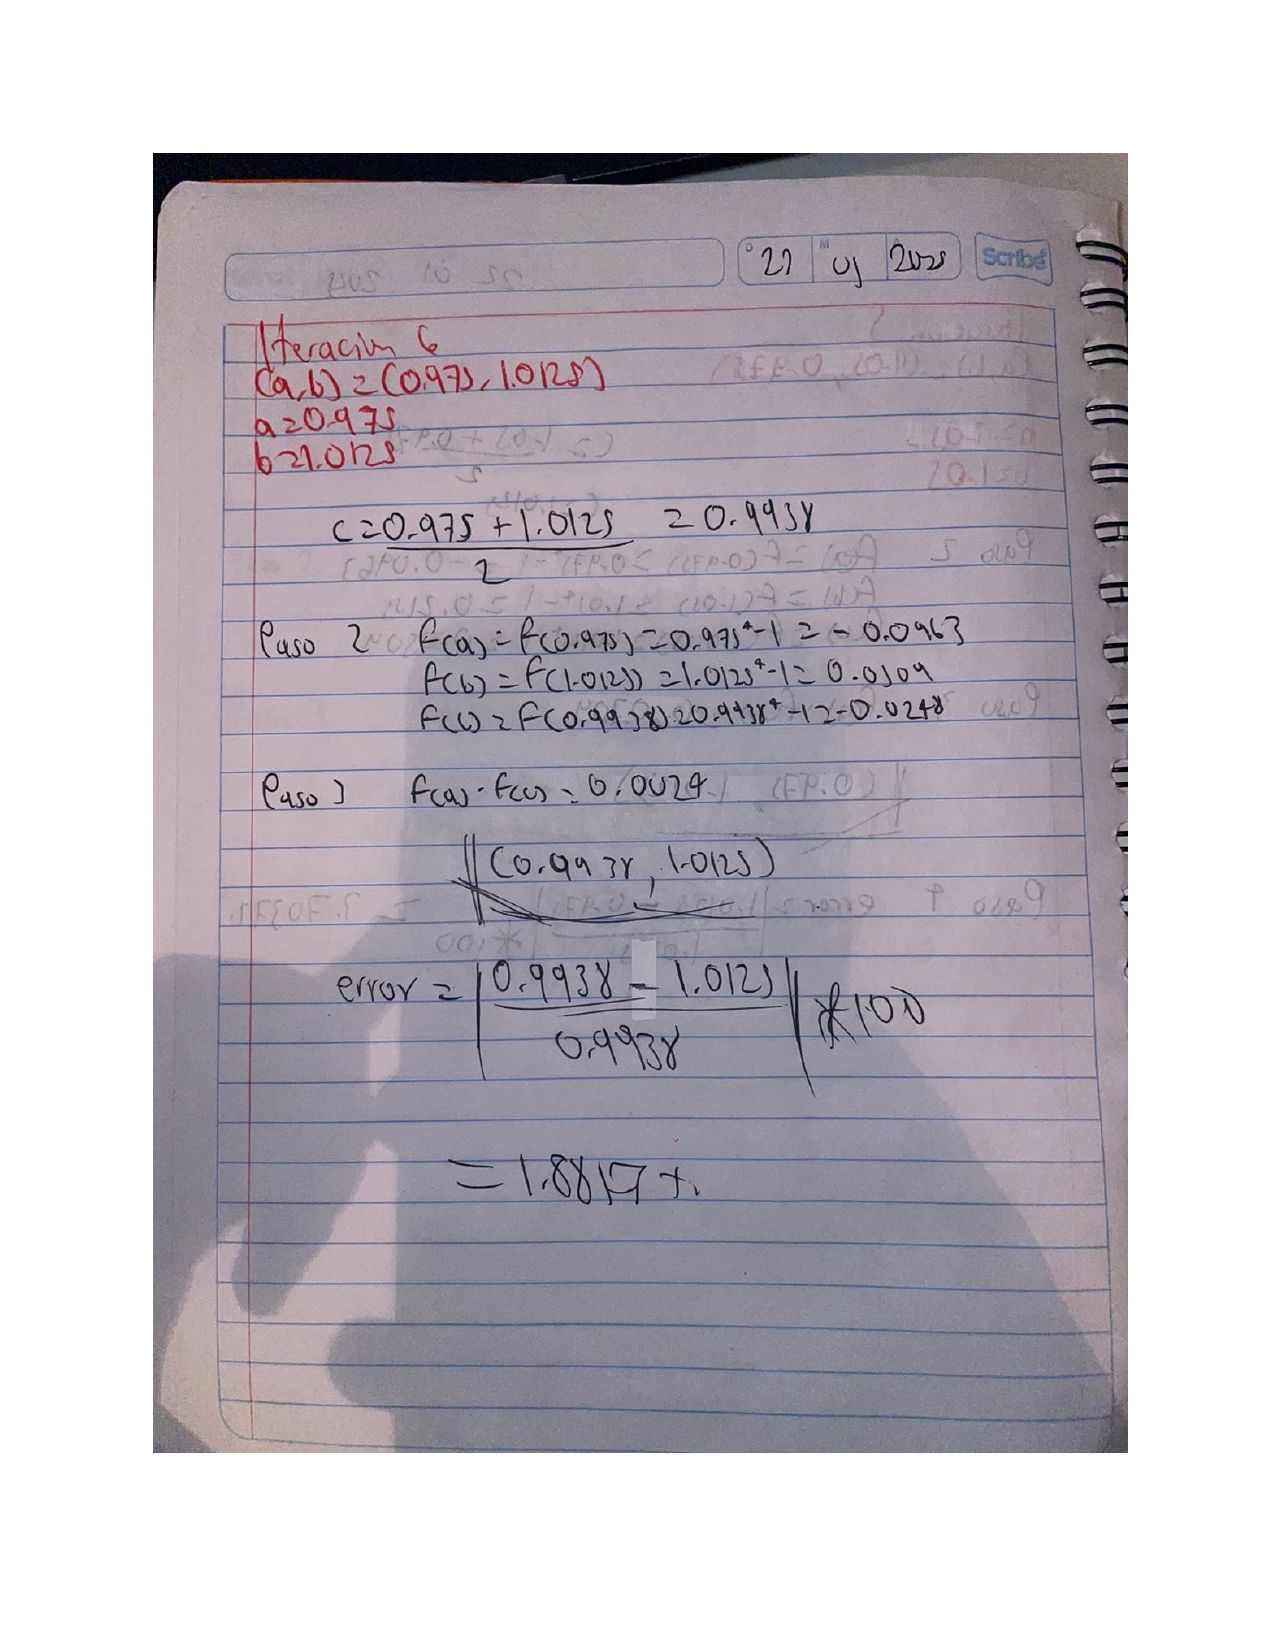 D 27 M 01 2025 Scribe
Iteración 6
(a,b) = (0.975, 1.0125)
a = 0.975
b = 1.0125
c = 0.975 + 1.0125 = 0.9938
2
Paso 2 f(a) = f(0.975) = 0.975⁴-1 = -0.0963
f(b) = f(1.0125) = 1.0125⁴-1 = 0.0509
f(c) = f(0.9938) = 0.9938⁴-1 = -0.0248
Paso 3 f(a) · f(c) = 0.0024
(0.9938, 1.0125)
error = | 0.9938 - 1.0125 | * 100
0.9938
= 1.8817 %